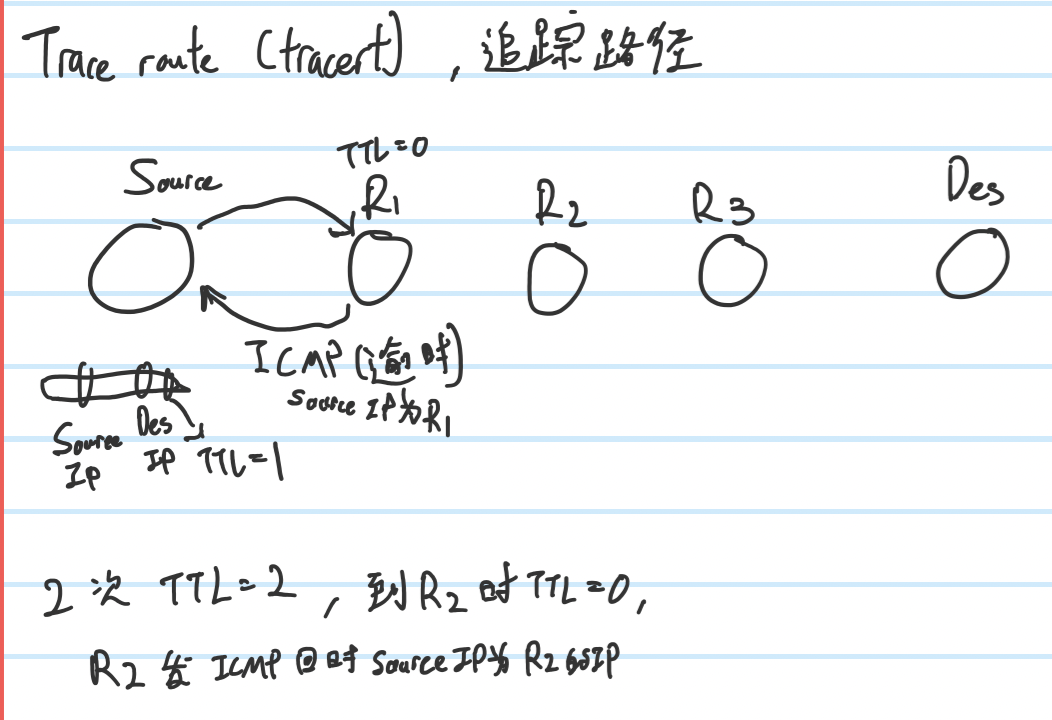 Trace route (tracert) , 追踪路径
TTL=0
Source
R1
R2
R3
Des
ICMP (逾时)
Source IP为R1
Source IP
Des IP
TTL=1
2次 TTL=2 , 到R2时TTL=0,
R2 发 ICMP 回时 Source IP为 R2的IP